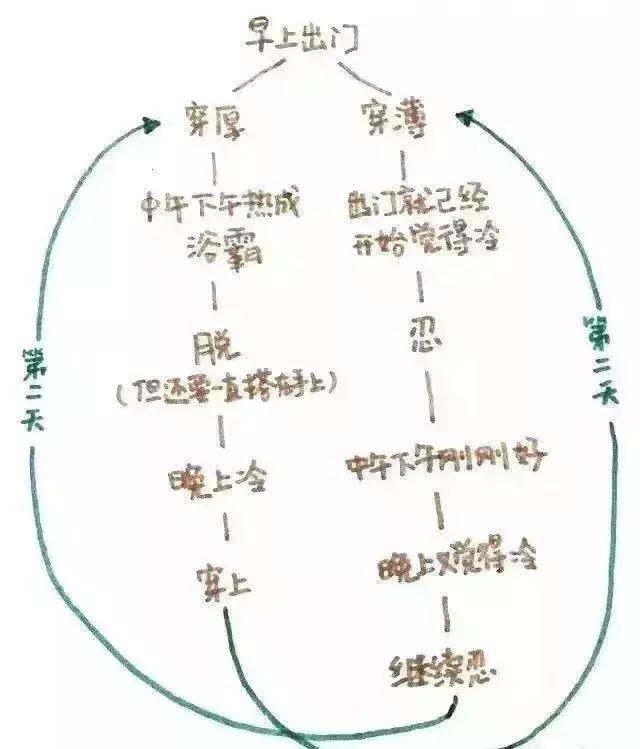 早上出门
穿厚
穿薄
中午下午热成
浴霸
脱
(但还要一直搭在手上)
晚上冷
穿上
出门就已经
开始觉得冷
忍
中午下午刚刚好
晚上又觉得冷
继续忍
第二天
第二天